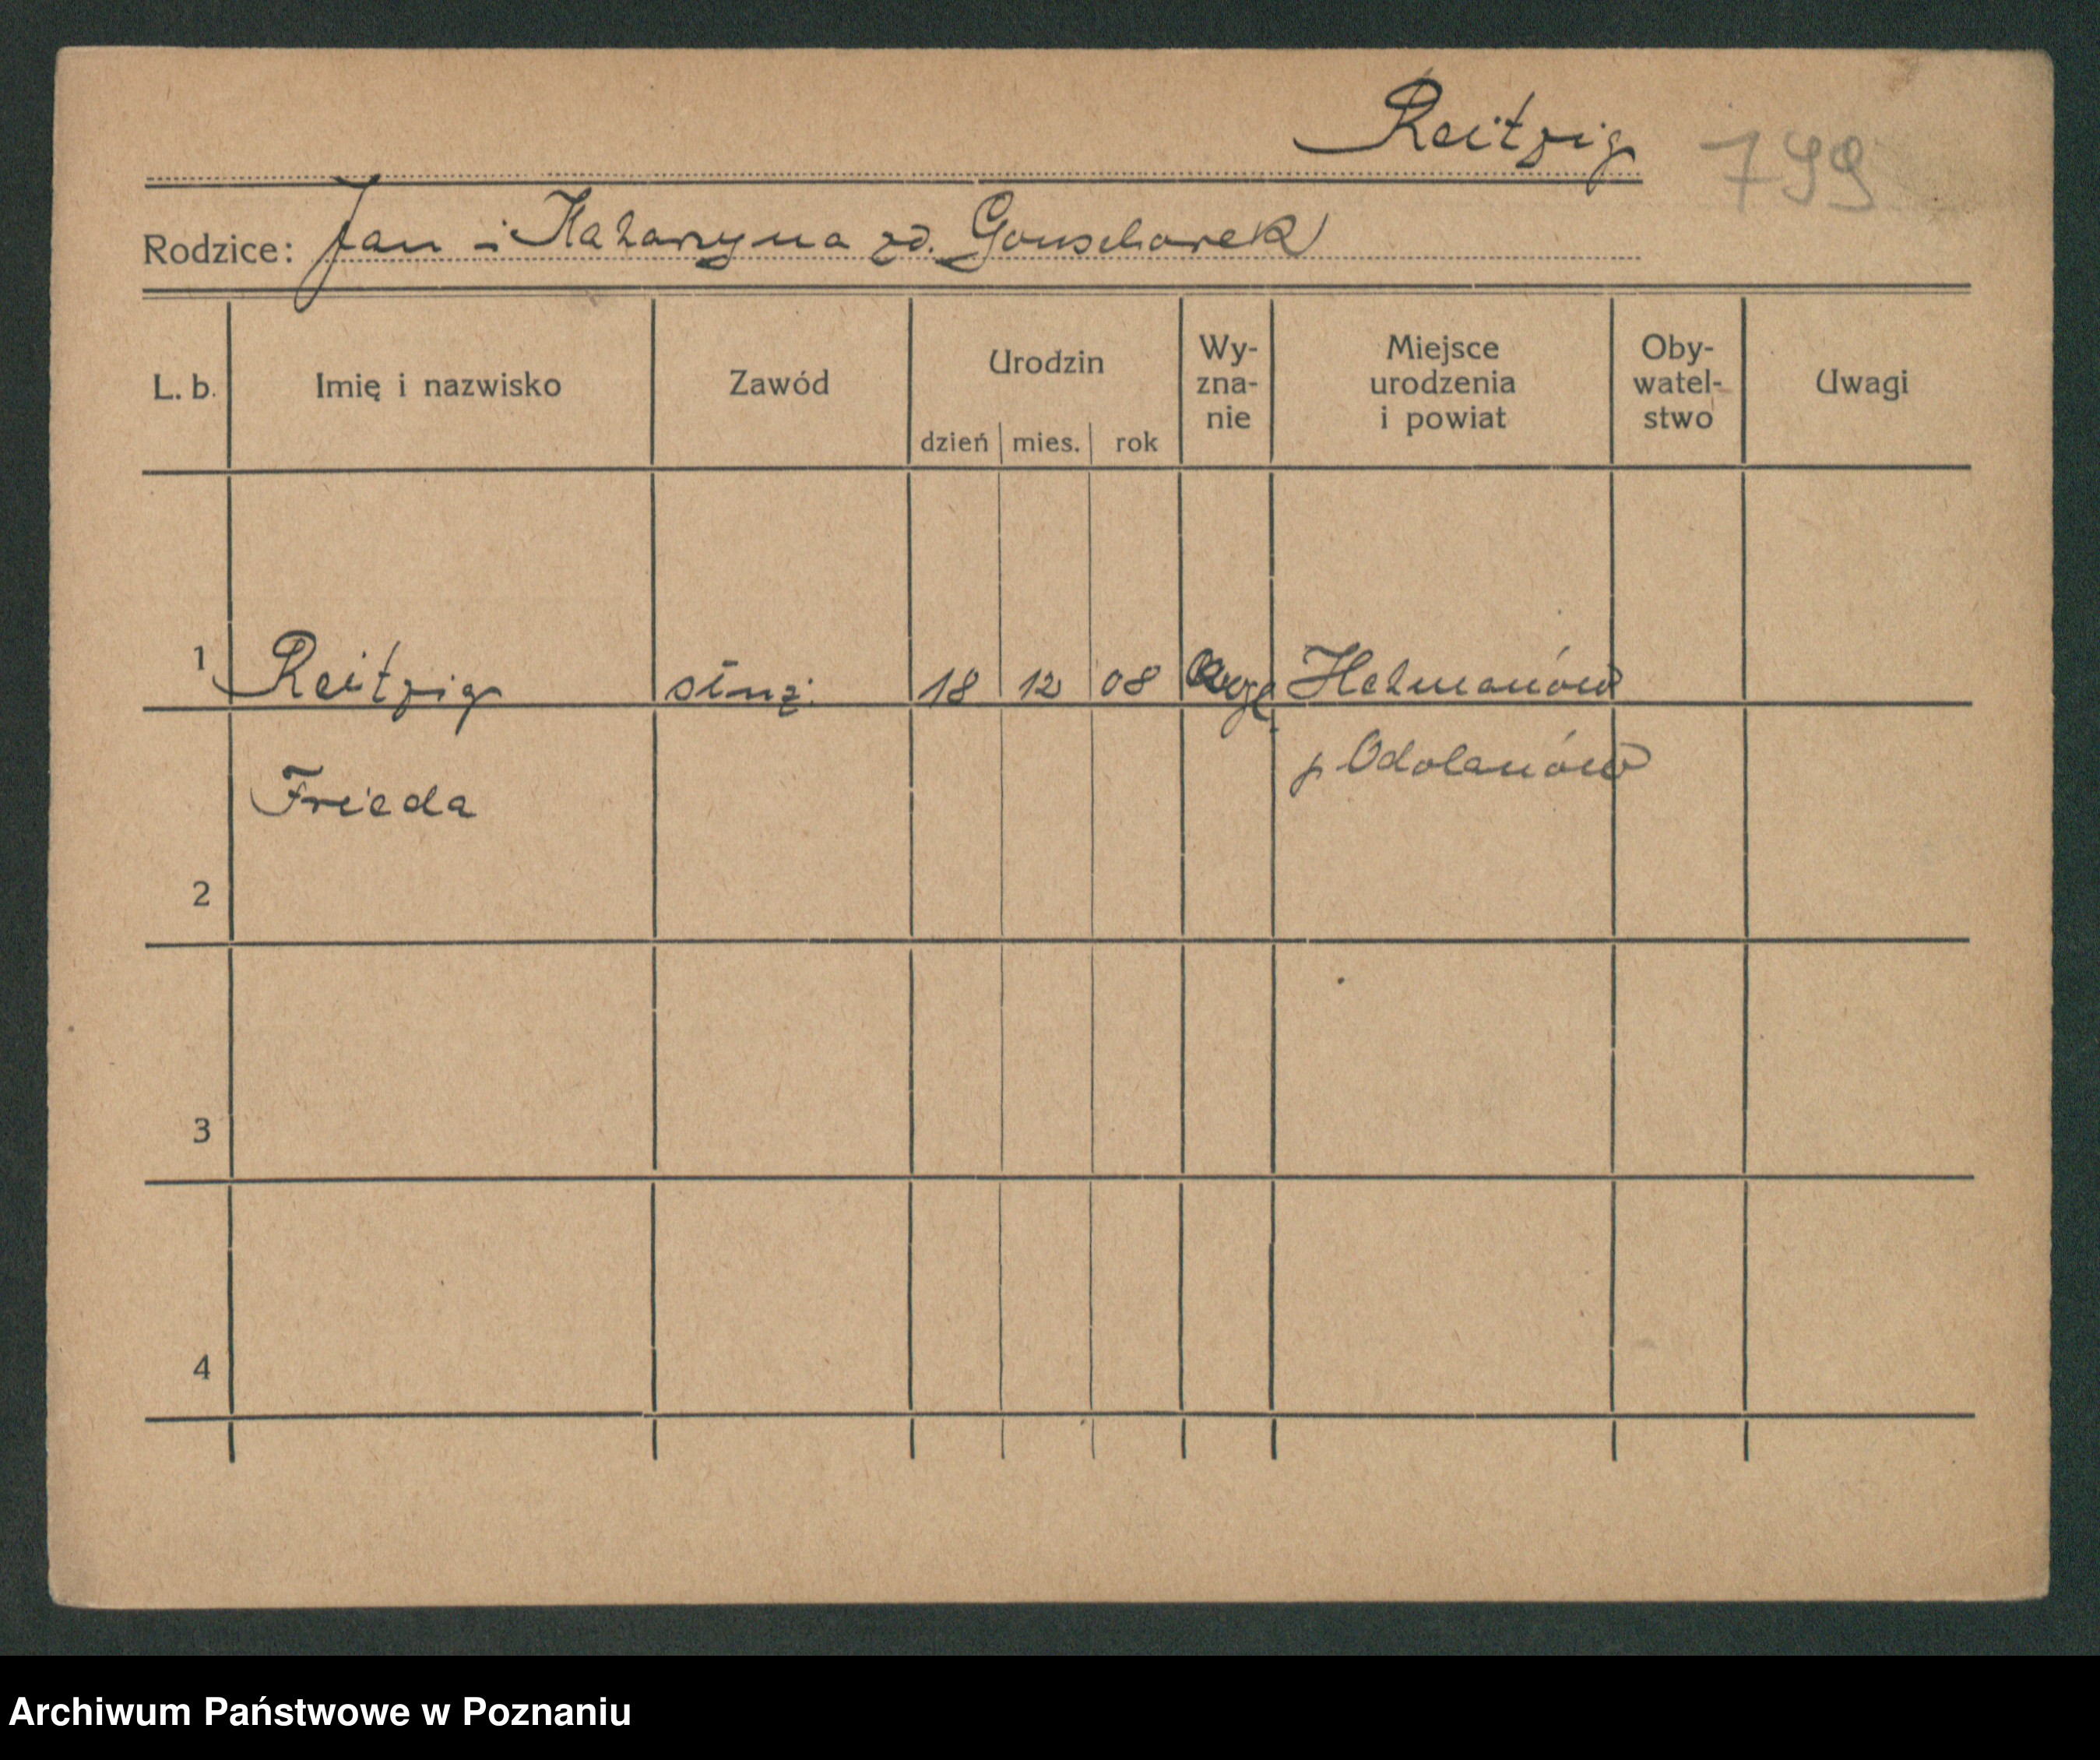 Reitzig 799
Rodzice: Jan i Katarzyna zd. Gonscharek
L. b. Imię i nazwisko Zawód Urodzin dzień mies. rok Wy-zna-nie Miejsce urodzenia i powiat Oby-watel-stwo Uwagi
1 Reitzig służ. 18 12 08 Hetmanów
Frieda p. Odolanów
2
3
4
Archiwum Państwowe w Poznaniu